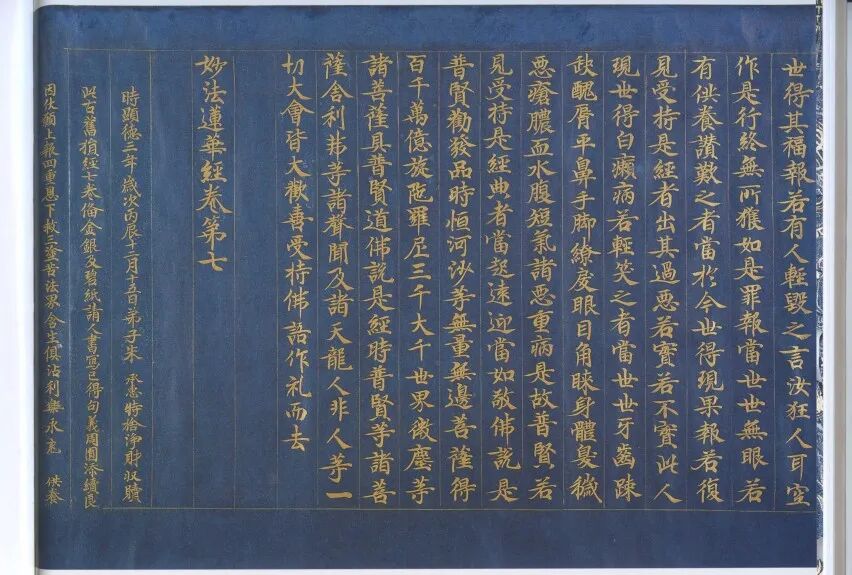 世得其福報若有人輕毀之言汝狂人耳空
作是行終無所獲如是罪報當世世無眼若
有供養讚歎之者當於今世得現果報若復
見受持是經者出其過惡若實若不實此人
現世得白癩病若輕笑之者當世世牙齒踈
缺醜脣平鼻手脚繚戾眼目角睞身體臭穢
惡瘡膿血水腹短氣諸惡重病是故普賢若
見受持是經典者當起遠迎當如敬佛說是
普賢勸發品時恒河沙等無量無邊菩薩得
百千萬億旋陁羅尼三千大千世界微塵等
諸菩薩具普賢道佛說是經時普賢等諸菩
薩舍利弗等諸聲聞及諸天龍人非人等一
切大會皆大歡喜受持佛語作礼而去
妙法蓮華經卷第七
時顯德三年歲次丙辰十二月十五日弟子朱承惠特捨淨財収贖
此古舊損經七卷備金銀及碧紙請人書寫已得句義周圓添續良
因伏願上報四重恩下救三塗苦法界含生俱沾利樂永充供養